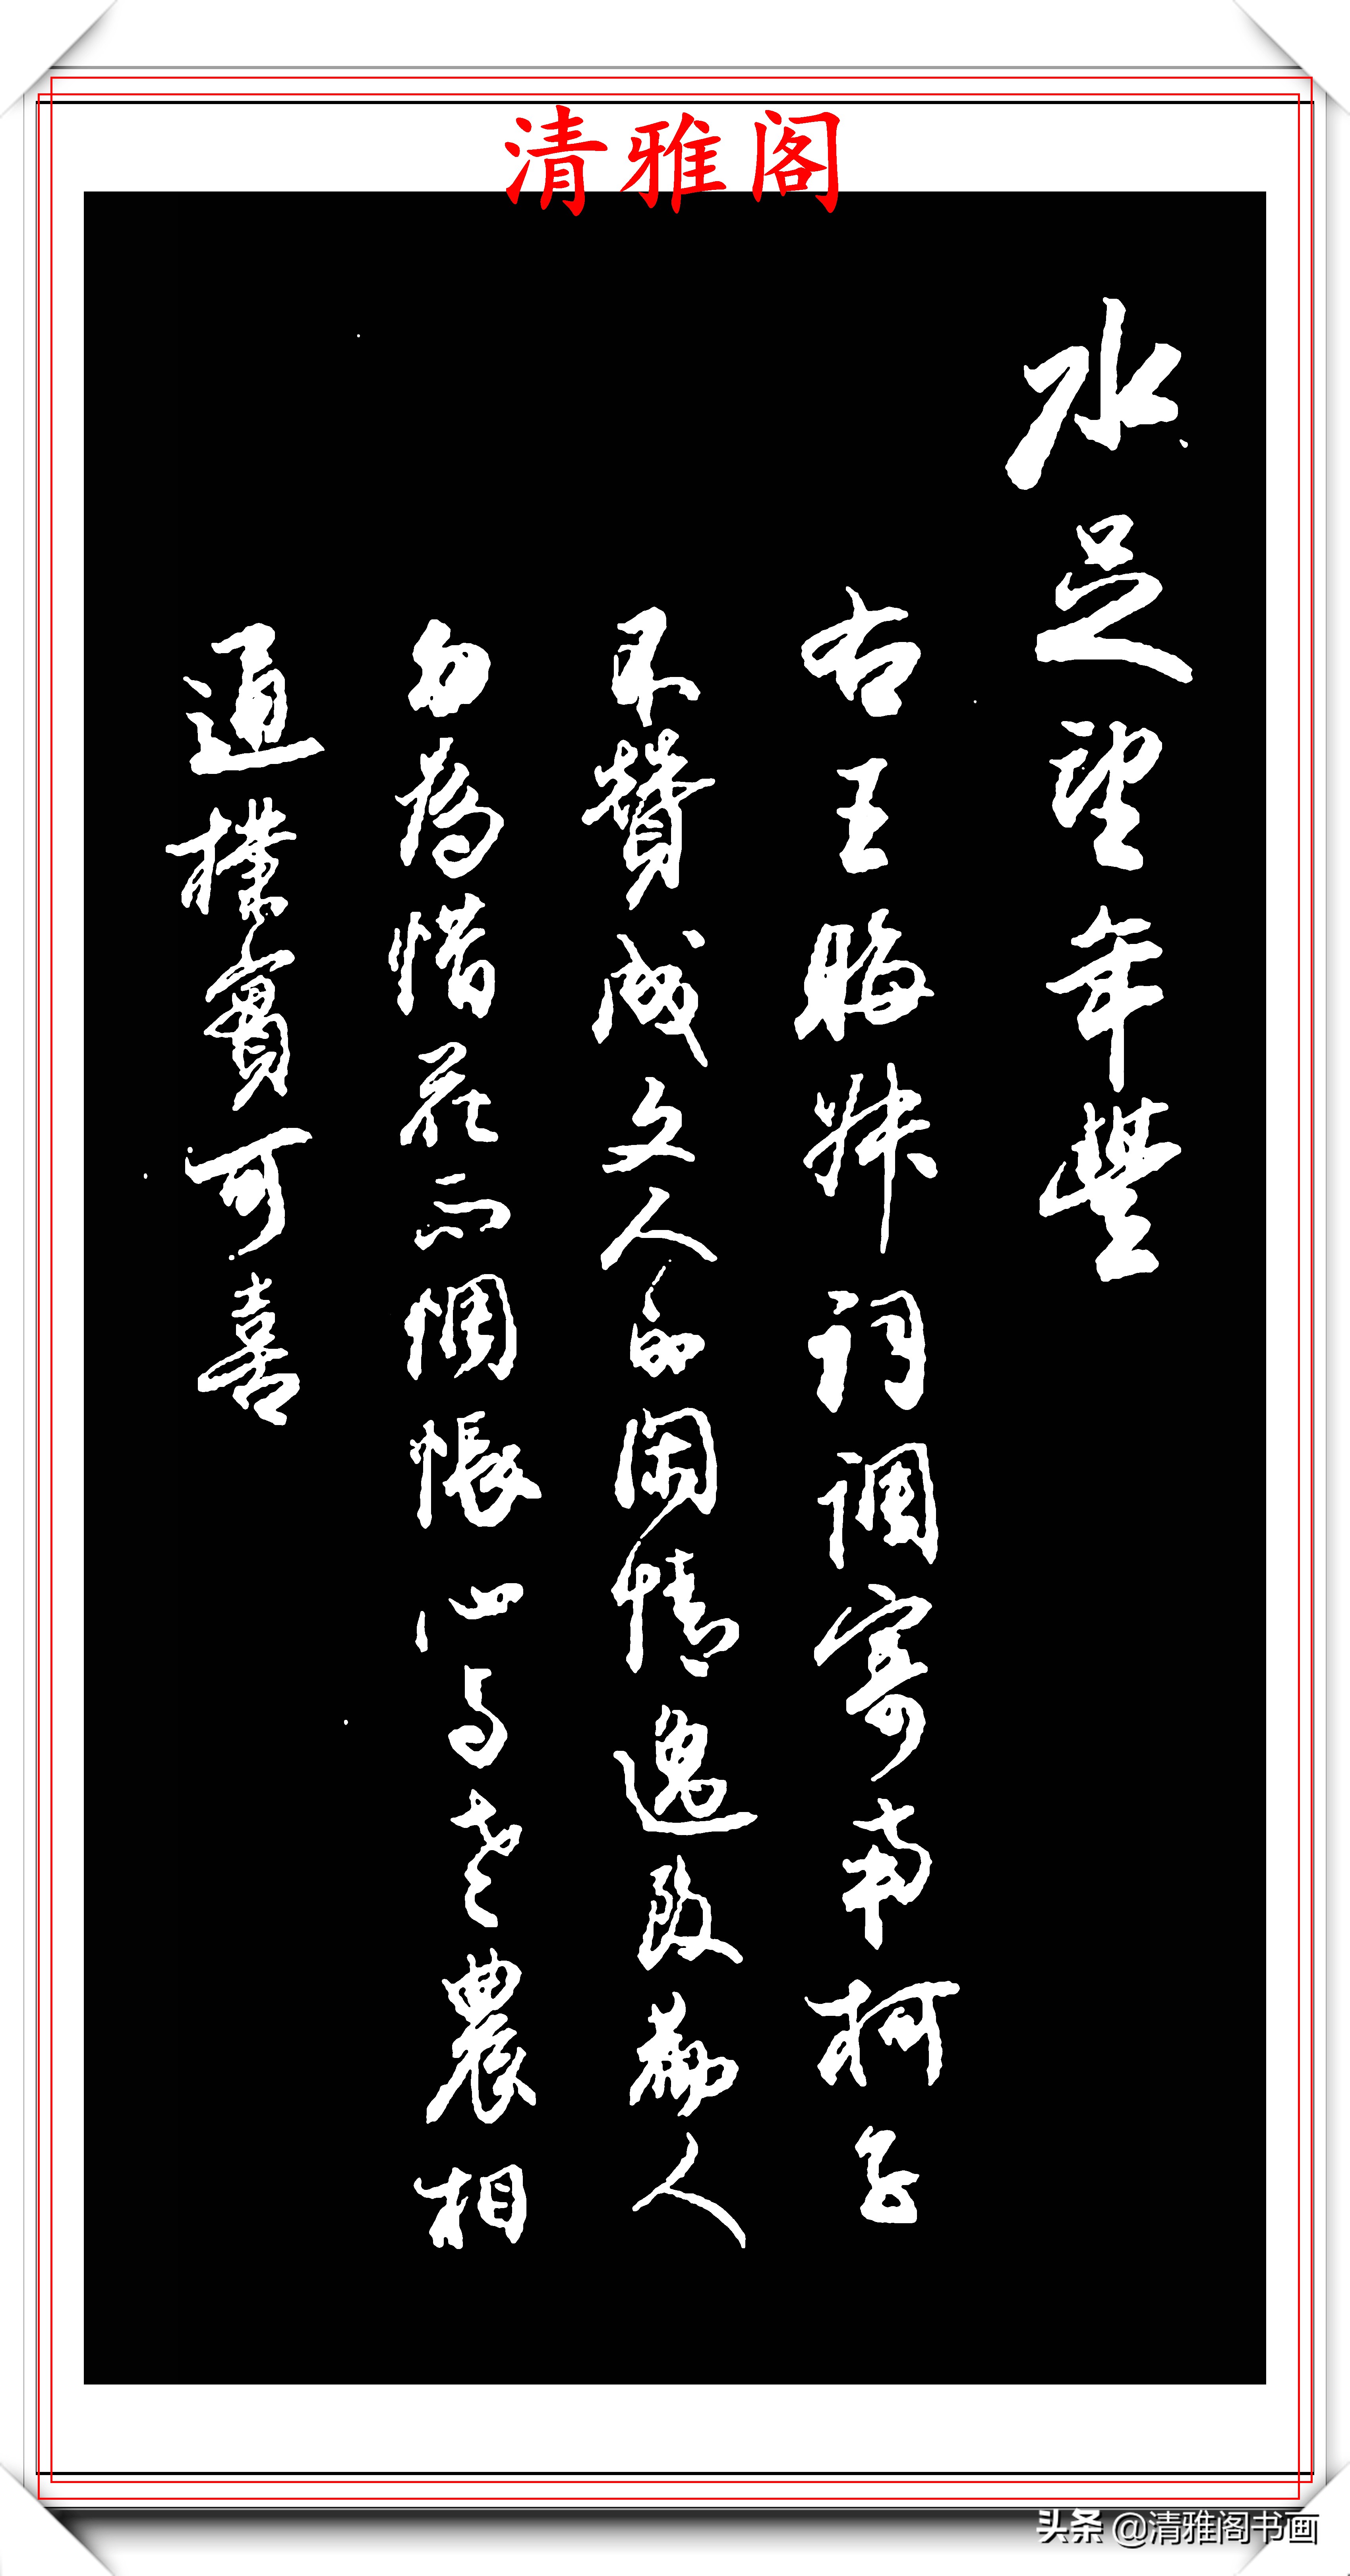 清雅阁
水足望年豐
右王晦叔詞調寄南柯子
不贊成文人的閑情逸致勸人
勿為惜花而惆悵心與老農相
通樸實可喜
头条 @清雅阁书画